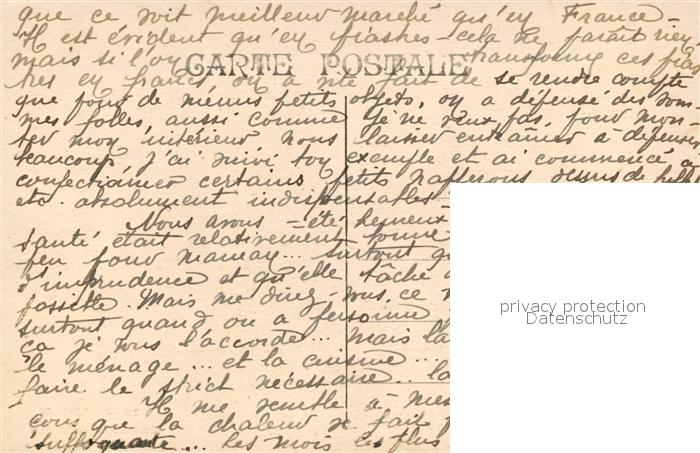 que ce soit meilleur marché qu'en France -
Il est évident qu'en piastres - cela ne paraît rien
mais si l'on transforme ces pias
CARTE POSTALE
tres en francs on a vite fait de se rendre compte
que pour de menus petits objets, on a dépensé des som
mes folles, aussi comme je ne veux pas, pour mon-
ter mon intérieur nous laisser entraîner à dépenser
beaucoup, j'ai suivi ton exemple et ai commencé à
confectionner certains petits napperons dessus de
etc. absolument indispensables -
Nous avons - été heureux
santé était relativement bonne
peu pour maman... surtout qu
d'imprudence et qu'elle tâche
possible. Mais me direz-vous, ce
surtout quand on a personne
ça je vous l'accorde... mais la
le ménage... et la cuisine...
faire le strict nécessaire.. la
Il me semble à mes
cous que la chaleur se fait
suffoquante... Les mois les plus
privacy protection
Datenschutz